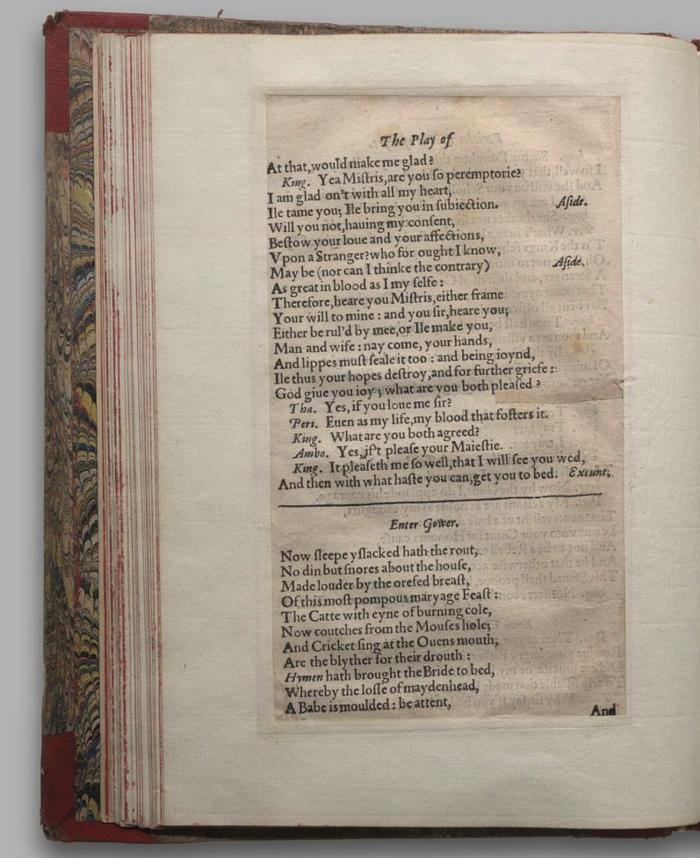 The Play of
At that, would make me glad?
King. Yea Miſtris, are you ſo peremptorie?
I am glad on't with all my heart,
Ile tame you; Ile bring you in ſubiection. Aſide.
Will you not, hauing my conſent,
Beſtow your loue and your affections,
Vpon a Stranger? who for ought I know,
May be (nor can I thinke the contrary) Aſide.
As great in blood as I my ſelfe:
Therefore, heare you Miſtris, either frame
Your will to mine: and you ſir, heare you;
Either be rul'd by mee, or Ile make you,
Man and wife: nay come, your hands,
And lippes muſt ſeale it too: and being ioynd,
Ile thus your hopes deſtroy, and for further griefe:
God giue you ioy; what are you both pleaſed?
Tha. Yes, if you loue me ſir?
Peri. Euen as my life, my blood that foſters it.
King. What are you both agreed?
Ambo. Yes, if't pleaſe your Maieſtie.
King. It pleaſeth me ſo well, that I will ſee you wed,
And then with what haſte you can, get you to bed. Exeunt.
Enter Gower.
Now ſleepe yſlacked hath the rout,
No din but ſnores about the houſe,
Made louder by the oreſed breaſt,
Of this moſt pompous maryage Feaſt:
The Catte with eyne of burning cole,
Now coutches from the Mouſes hole;
And Cricket ſing at the Ouens mouth,
Are the blyther for their drouth:
Hymen hath brought the Bride to bed,
Whereby the loſſe of maydenhead,
A Babe is moulded: be attent,
And